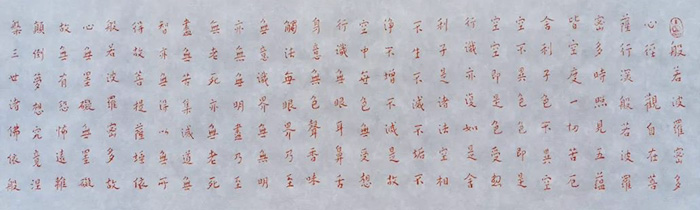 般若波羅蜜多
心經觀自在菩
薩行深般若波羅
蜜多時照見五蘊
皆空度一切苦厄
舍利子色不異空
空不異色色即是
空空即是色受想
行識亦復如是舍
利子是諸法空相
不生不滅不垢不
淨不增不減是故
空中無色無受想
行識無眼耳鼻舌
身意無色聲香味
觸法無眼界乃至
無意識界無無明
亦無無明盡乃至
無老死亦無老死
盡無苦集滅道無
智亦無得以無所
得故菩提薩埵依
般若波羅蜜多故
心無罣礙無罣礙
故無有恐怖遠離
顛倒夢想究竟涅
槃三世諸佛依般